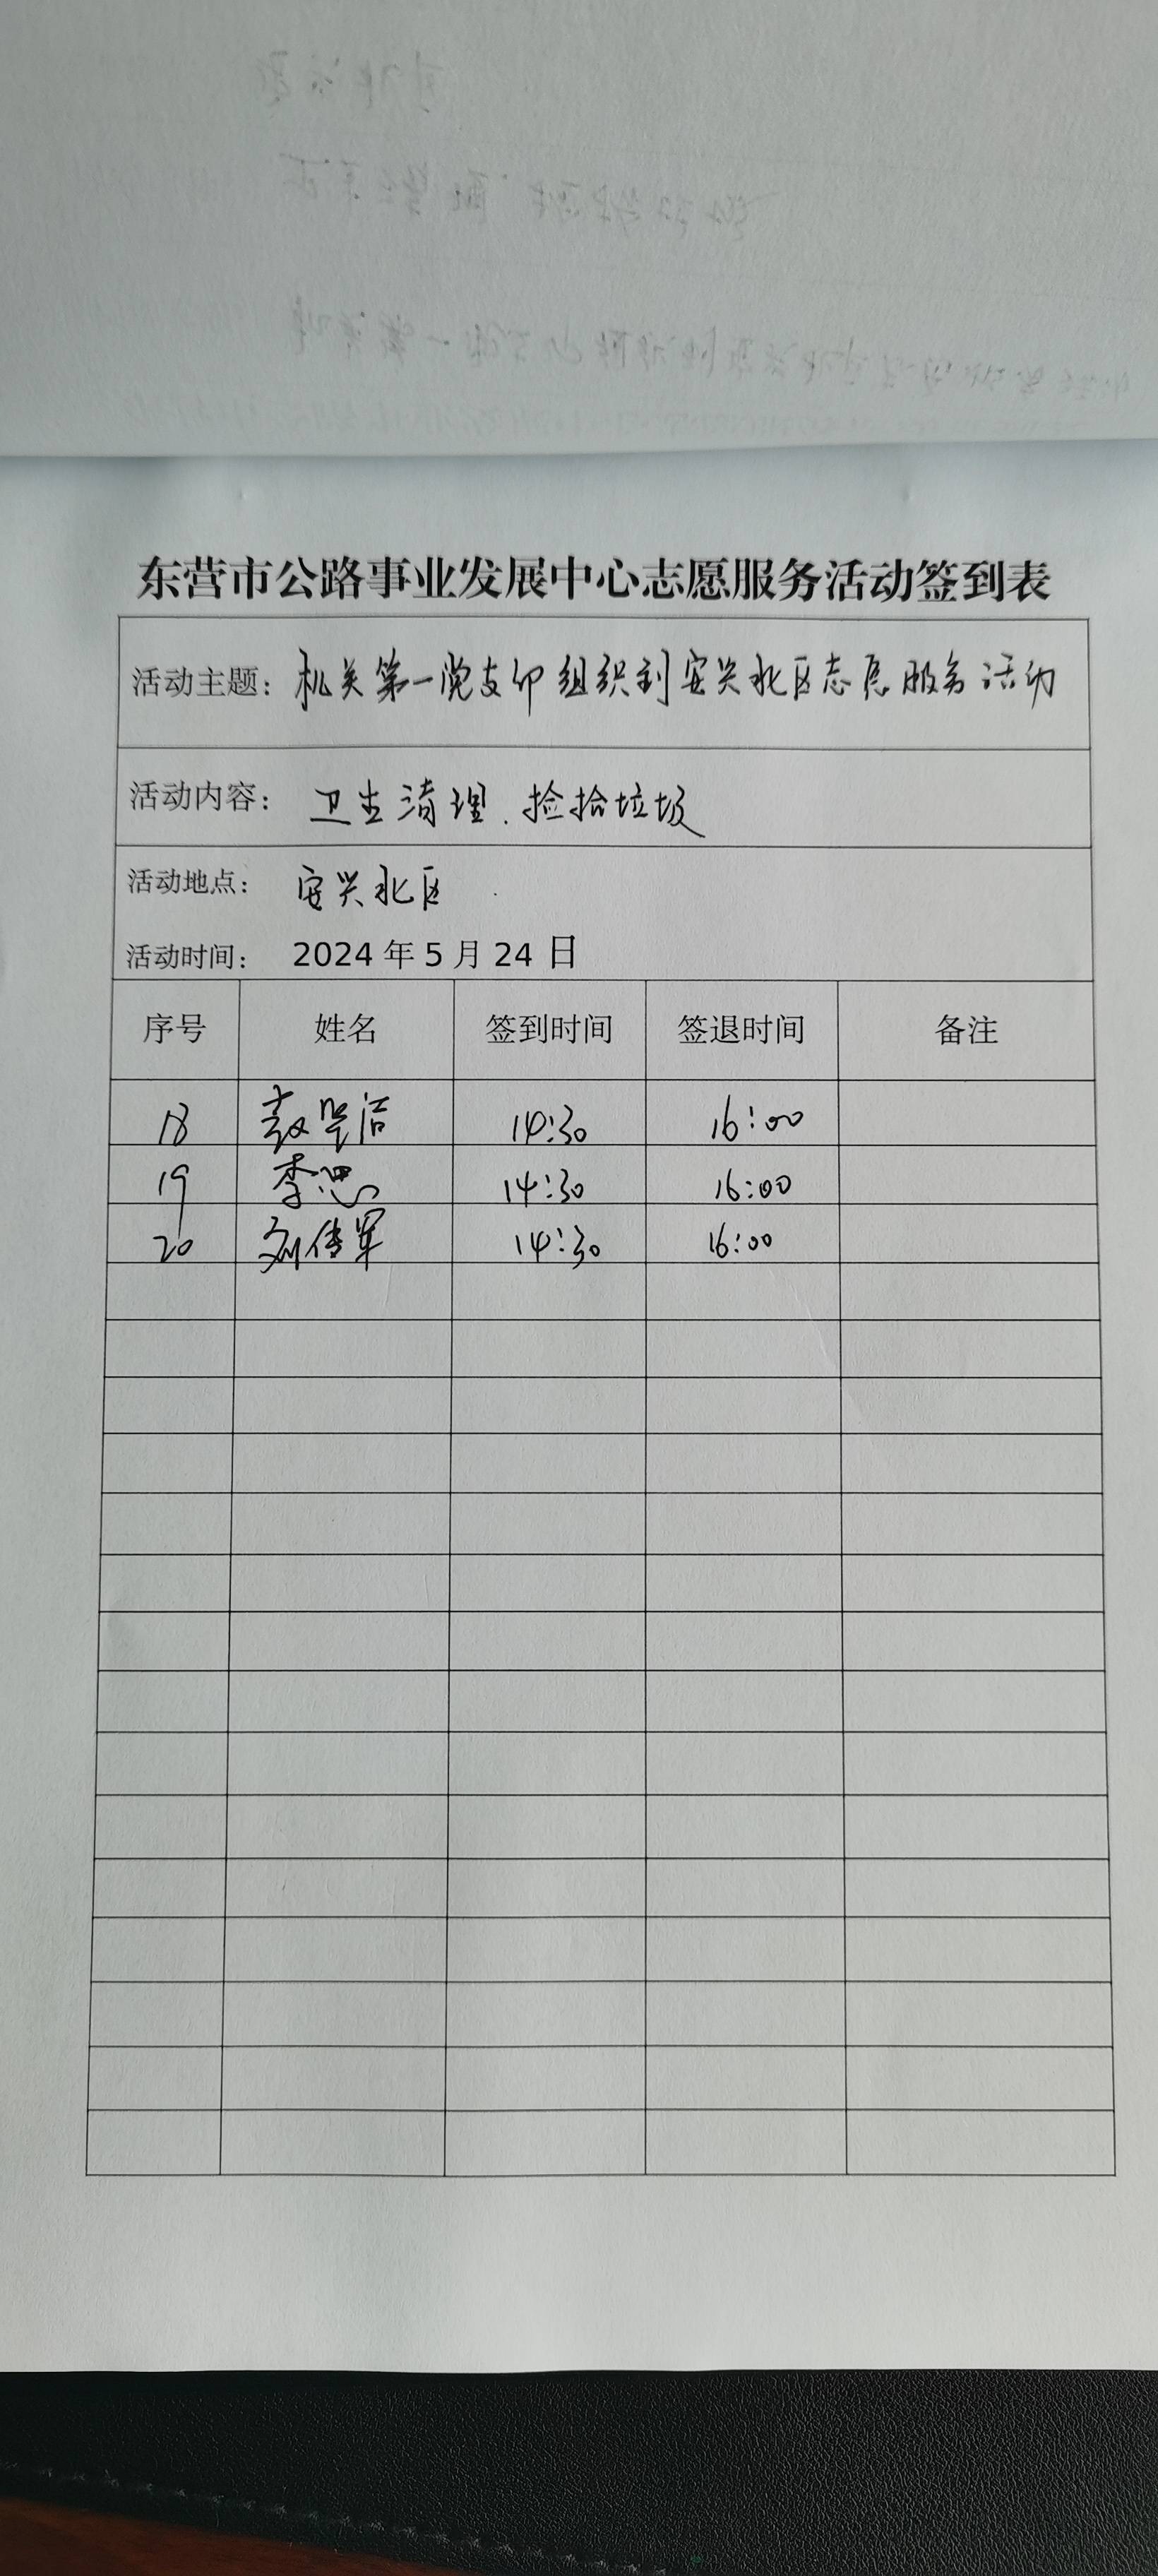 东营市公路事业发展中心志愿服务活动签到表
活动主题：机关第一党支部组织到安兴北区志愿服务活动
活动内容：卫生清理、捡拾垃圾
活动地点：安兴北区
活动时间：2024年5月24日
序号 姓名 签到时间 签退时间 备注
18 14:30 16:00
19 李思 14:30 16:00
20 刘传军 14:30 16:00